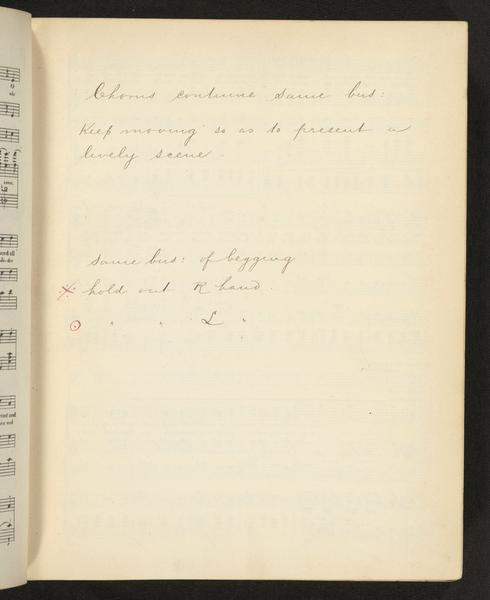 Chorus continue same bus:
Keep moving so as to present a
lively scene.
same bus: of begging
※ hold out R hand.
⊙ " " L "